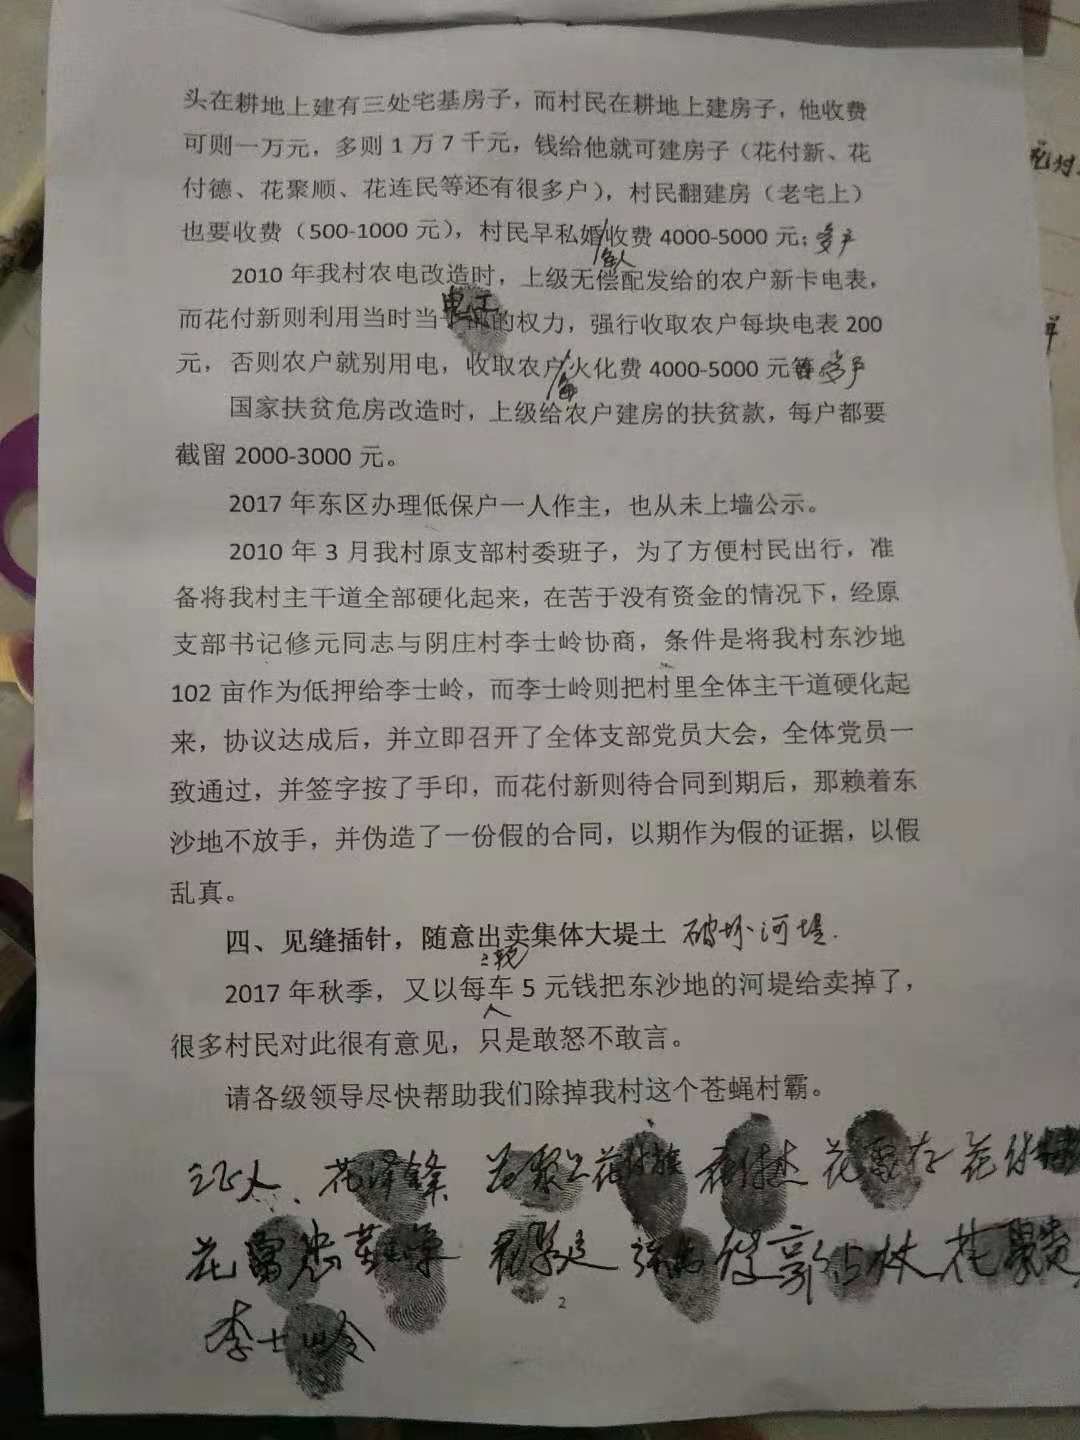 头在耕地上建有三处宅基房子，而村民在耕地上建房子，他收费
可则一万元，多则1万7千元，钱给他就可建房子（花付新、花
付德、花聚顺、花连民等还有很多户），村民翻建房（老宅上）
也要收费（500-1000元），村民早私婚收费4000-5000元；多户
每人
2010年我村农电改造时，上级无偿配发给的农户新卡电表，
电工
而花付新则利用当时当干部的权力，强行收取农户每块电表200
元，否则农户就别用电，收取农户火化费4000-5000元等多户
每
国家扶贫危房改造时，上级给农户建房的扶贫款，每户都要
截留2000-3000元。
2017年东区办理低保户一人作主，也从未上墙公示。
2010年3月我村原支部村委班子，为了方便村民出行，准
备将我村主干道全部硬化起来，在苦于没有资金的情况下，经原
支部书记修元同志与阴庄村李士岭协商，条件是将我村东沙地
102亩作为低押给李士岭，而李士岭则把村里全体主干道硬化起
来，协议达成后，并立即召开了全体支部党员大会，全体党员一
致通过，并签字按了手印，而花付新则待合同到期后，那赖着东
沙地不放手，并伪造了一份假的合同，以期作为假的证据，以假
乱真。
四、见缝插针，随意出卖集体大堤土 破坏河堤.
三轮
2017年秋季，又以每车5元钱把东沙地的河堤给卖掉了，
很多村民对此很有意见，只是敢怒不敢言。
请各级领导尽快帮助我们除掉我村这个苍蝇村霸。
证人、花泽锋 花付杰 花
花 郭占林 花聚贵
2
李士岭